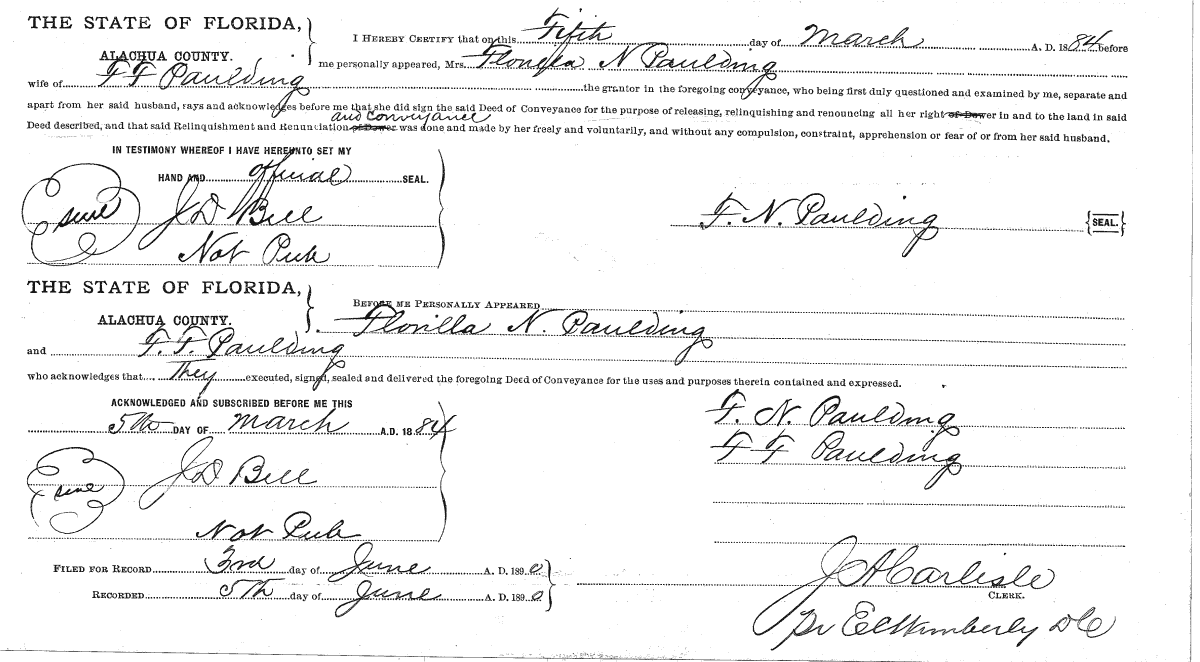 THE STATE OF FLORIDA,
ALACHUA COUNTY.
I HEREBY CERTIFY that on this Fifth day of March A. D. 1884 before
me personally appeared, Mrs. Florella N Paulding
wife of F F Paulding the grantor in the foregoing conveyance, who being first duly questioned and examined by me, separate and
apart from her said husband, rays and acknowledges before me that she did sign the said Deed of Conveyance for the purpose of releasing, relinquishing and renouncing all her right of Dower in and to the land in said
and conveyance
Deed described, and that said Relinquishment and Renunciation of Dower was done and made by her freely and voluntarily, and without any compulsion, constraint, apprehension or fear of or from her said husband.
IN TESTIMONY WHEREOF I HAVE HEREUNTO SET MY
HAND AND official SEAL.
J D Bell
Not Pub
F. N. Paulding {SEAL.}
THE STATE OF FLORIDA,
ALACHUA COUNTY.
BEFORE ME PERSONALLY APPEARED
Florilla N. Paulding
and F. F. Paulding
who acknowledges that They executed, signed, sealed and delivered the foregoing Deed of Conveyance for the uses and purposes therein contained and expressed.
ACKNOWLEDGED AND SUBSCRIBED BEFORE ME THIS
5th DAY OF March A.D. 1884
J D Bell
Not Pub
F. N. Paulding
F F Paulding
FILED FOR RECORD 3rd day of June A. D. 1890
RECORDED 5Th day of June A. D. 1890
J A Carlisle
CLERK.
Pr E C Wimberly D C